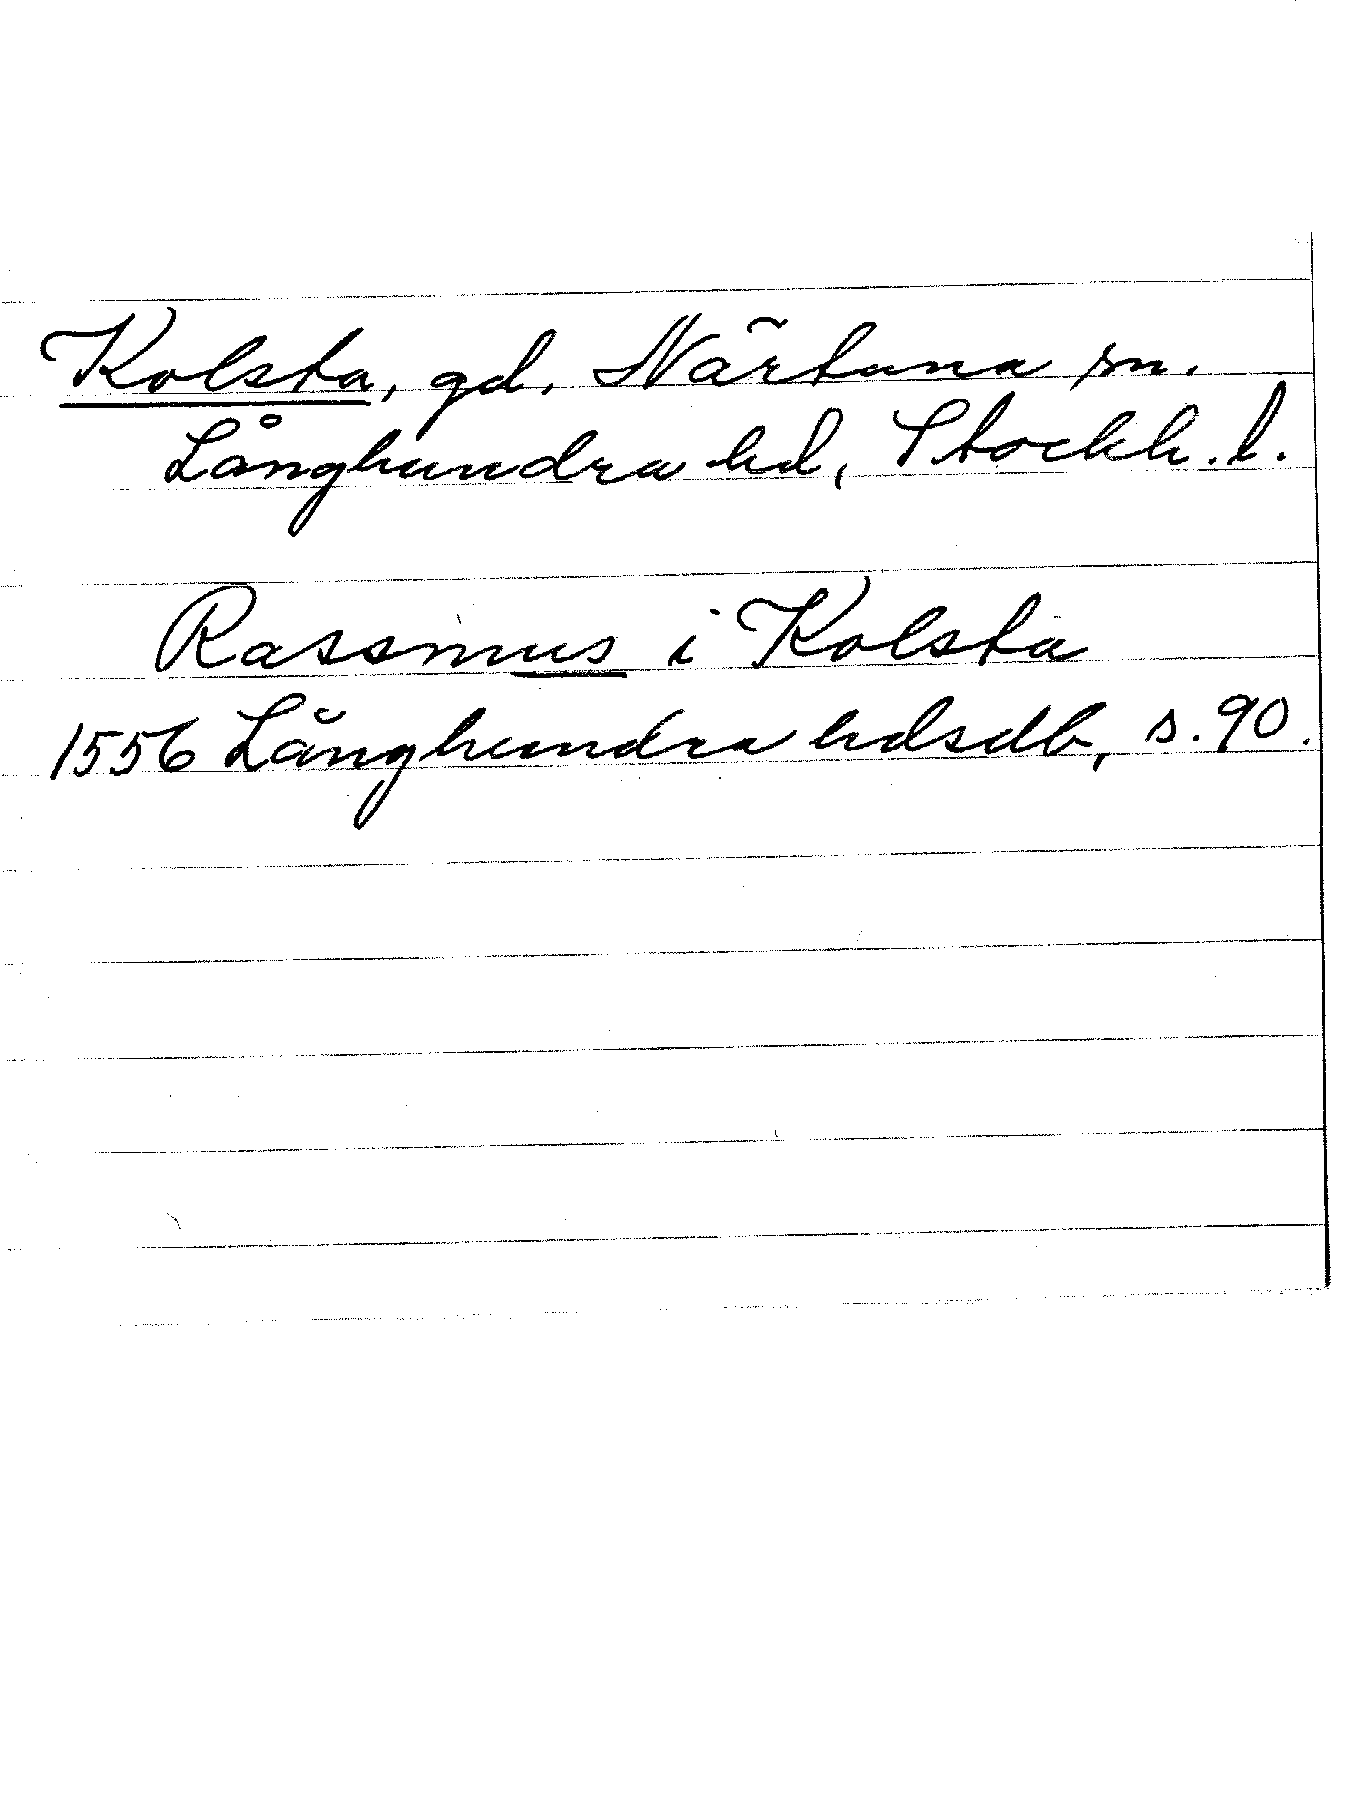 Kolsta, gd, Närtuna sn.
Långhundra hd, Stockh. l.
Rassmus i Kolsta
1556 Långhundra hdsdb, s. 90.